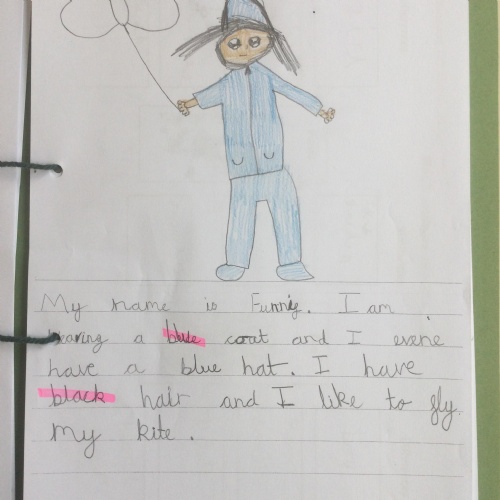 My name is Funnig. I am
wearing a blue coat and I evene
have a blue hat. I have
black hair and I like to fly
my kite.